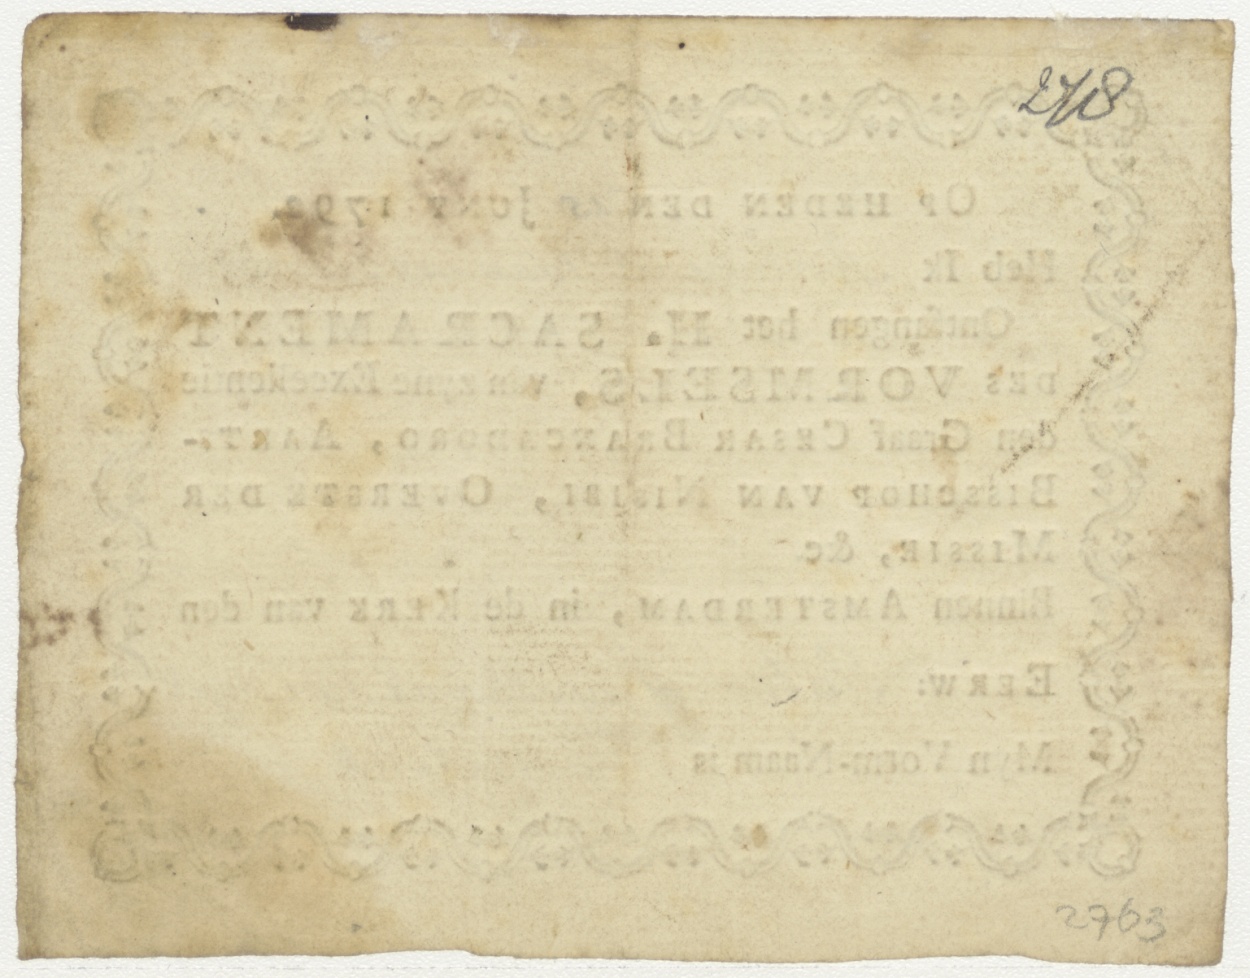 2718
OP HEDEN DEN JUNY 1792
Heb Ik
Ontfangen het H. SACRAMENT
DES VORMSELS, van zyne Excellentie
den Graaf CESAR BRANCADORO, AARTS-
BISSCHOP VAN NISIBI, OVERSTE DER
MISSIE, &c
Binnen AMSTERDAM, in de KERK van den
EERW:
Myn Vorm-Naam is
2763